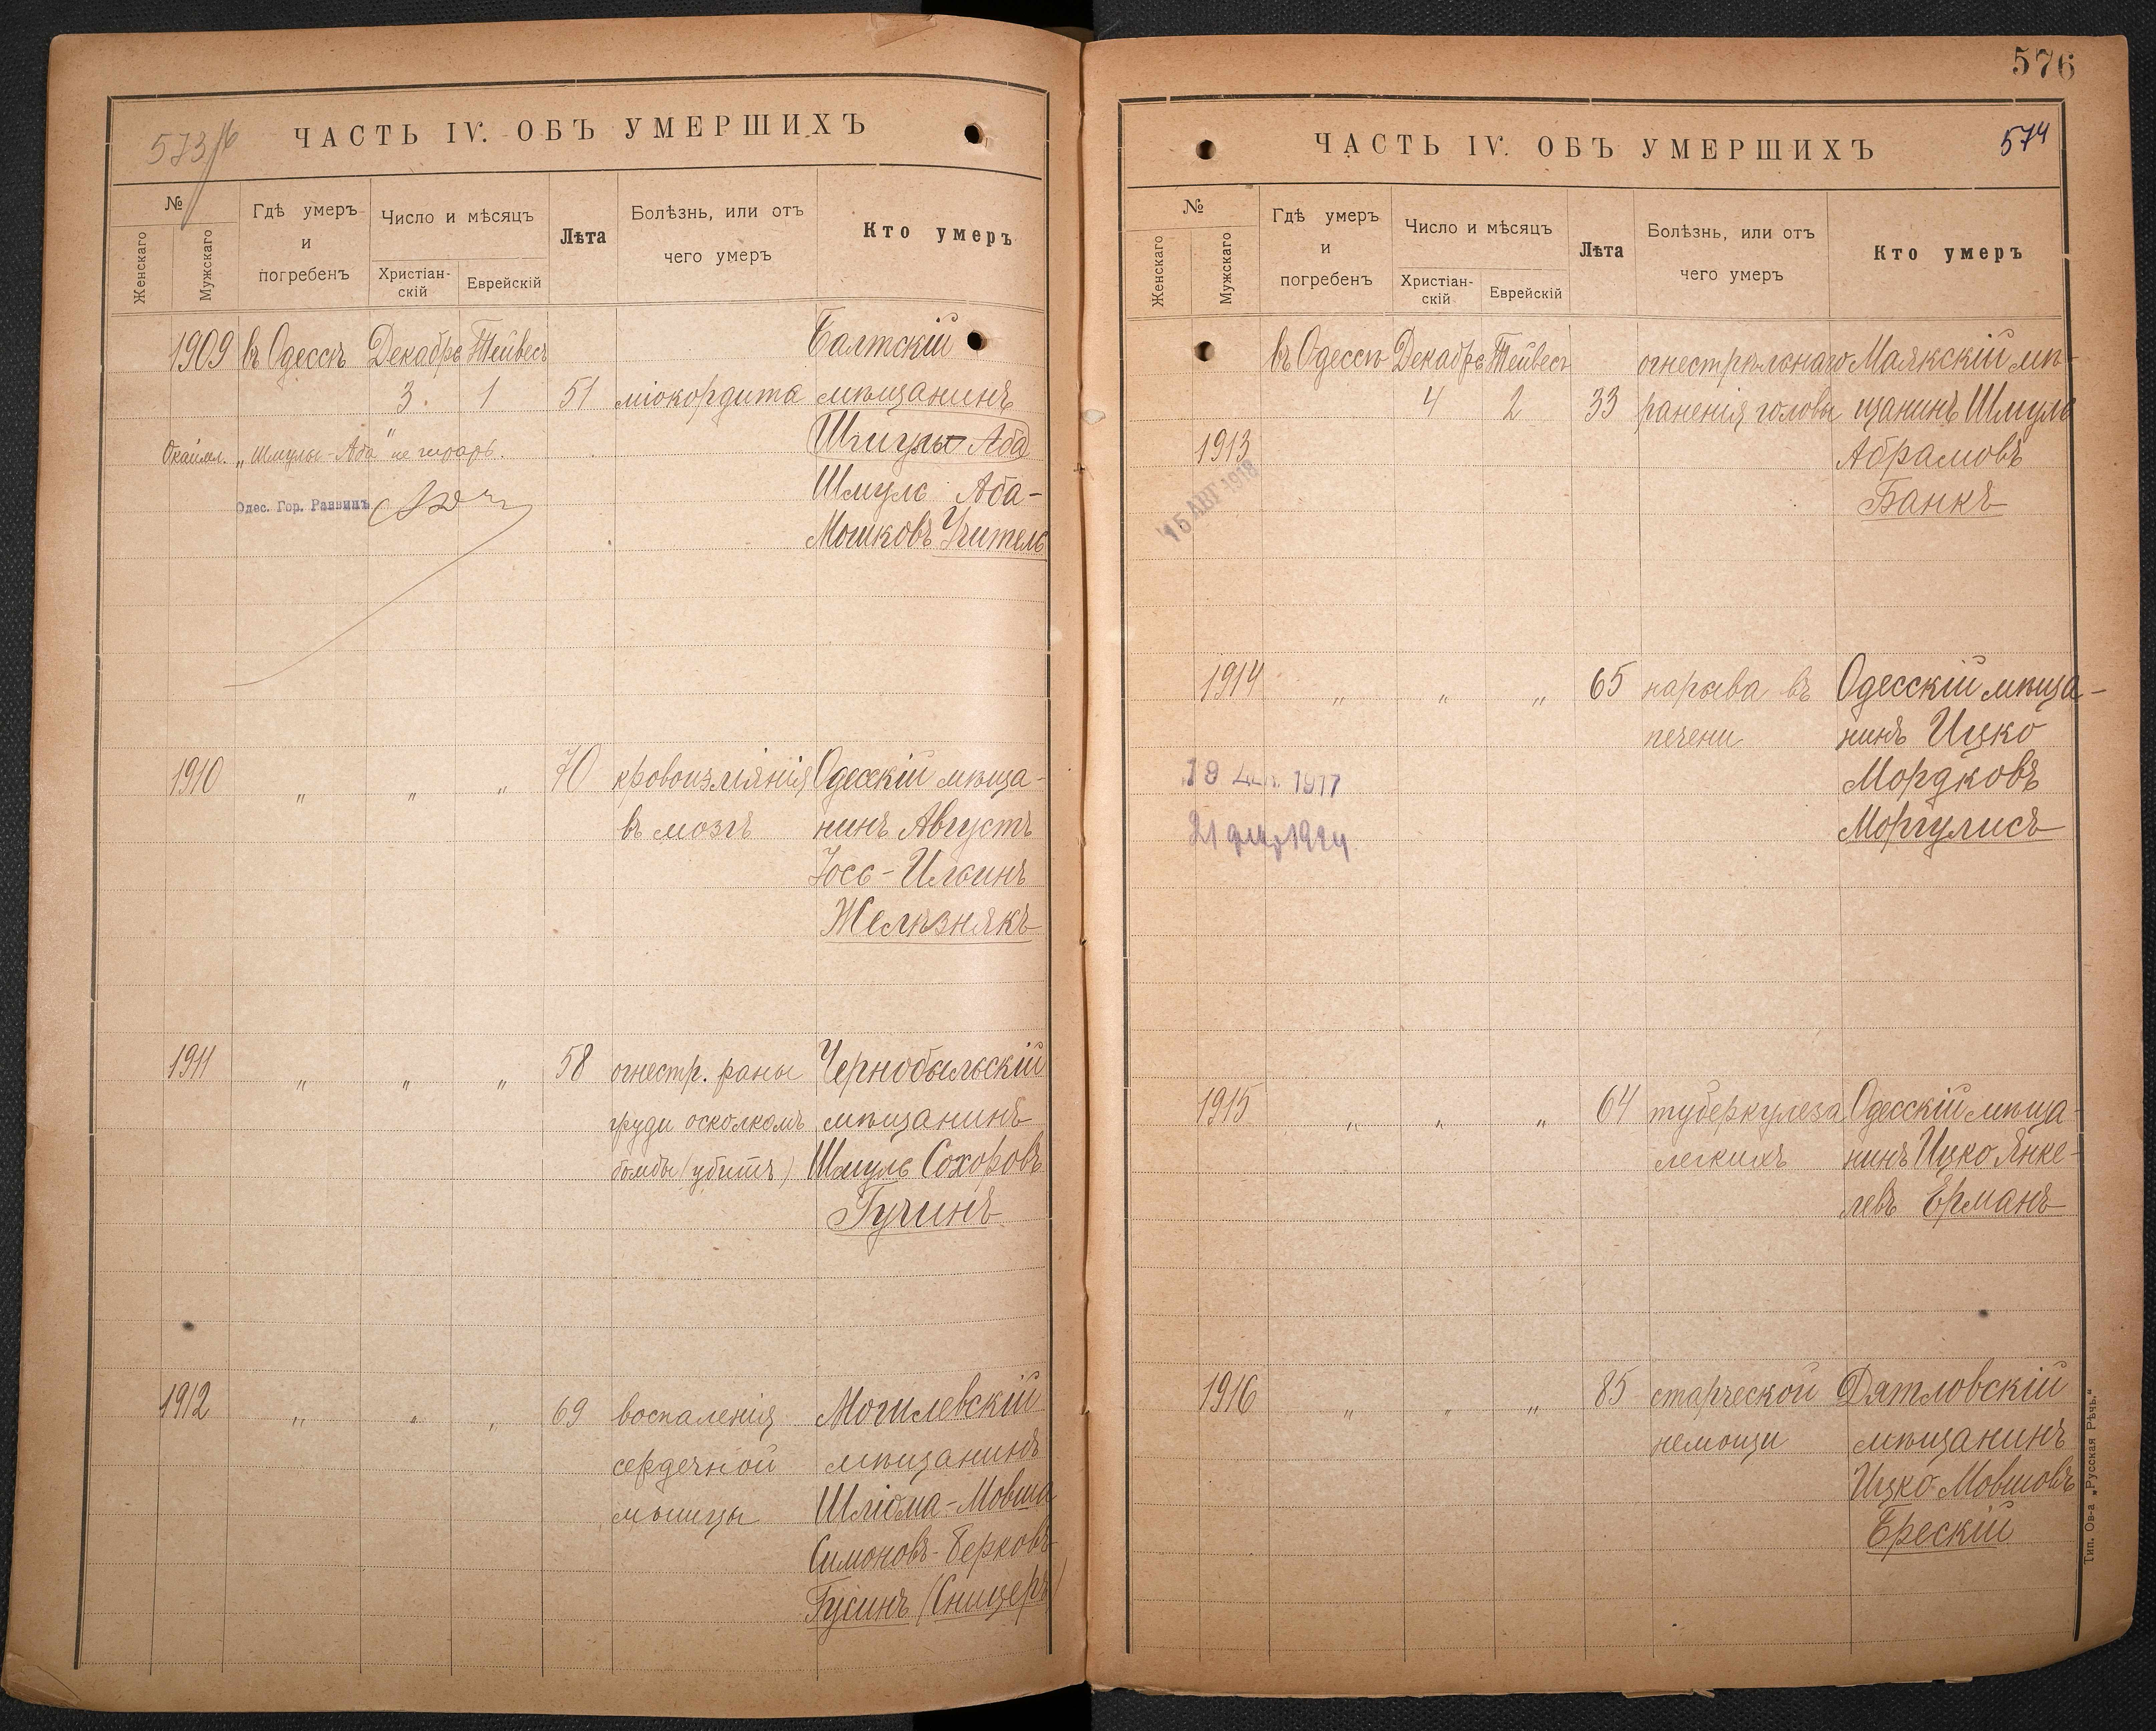 573
ЧАСТЬ IV. ОБЪ УМЕРШИХЪ
№
Женскаго
Мужскаго
Гдѣ умеръ и погребенъ
Число и мѣсяцъ
Христіан-скій
Еврейскій
Лѣта
Болѣзнь, или отъ чего умеръ
Кто умеръ
1909 въ Одессѣ Декабрь Тейвесъ Балтскій
3. 1 51 міокордита мѣщанинъ
"Шмулы-Аба" не читать. Шмулы Аба
Шмуль Аба-
Одес. Гор. Раввинъ
Мошковъ Учитель
1910 " " " 70 кровоизліянія Одесскій мѣща-
въ мозгъ нинъ Августъ
Іось-Илинъ
Желѣзнякъ
1911 " " " 58 огнестр. раны Чернобыльскій
груди осколкомъ мѣщанинъ
бомбы (убитъ) Шмуль Сохоровъ
Гучинъ
1912 " " " 69 воспаленія Могилевскій
сердечной мѣщанинъ
мышцы Шліома-Мовша
Симоновъ-Берковъ
Гусинъ (Сницеръ)
576
ЧАСТЬ IV. ОБЪ УМЕРШИХЪ
574
№
Женскаго
Мужскаго
Гдѣ умеръ и погребенъ
Число и мѣсяцъ
Христіан-скій
Еврейскій
Лѣта
Болѣзнь, или отъ чего умеръ
Кто умеръ
въ Одессѣ Декабрь Тейвесъ огнестрѣльнаго Маякскій мѣ-
4 2 33 раненія головы щанинъ Шмуль
1913 Абрамовъ
15 АВГ 1918
Банкъ
1914 " " " 65 нарыва въ Одесскій мѣща-
печени нинъ Ицко
19 1917 Мордковъ
21 1924 Моргулисъ
1915 " " " 64 туберкулеза Одесскій мѣща-
легкихъ нинъ Ицко Янке-
левъ Ерманъ
1916 " " " 85 старческой Дятловскій
немощи мѣщанинъ
Ицко Мовшовъ
Брескій
Тип. Ов-а „Русская Рѣчь."